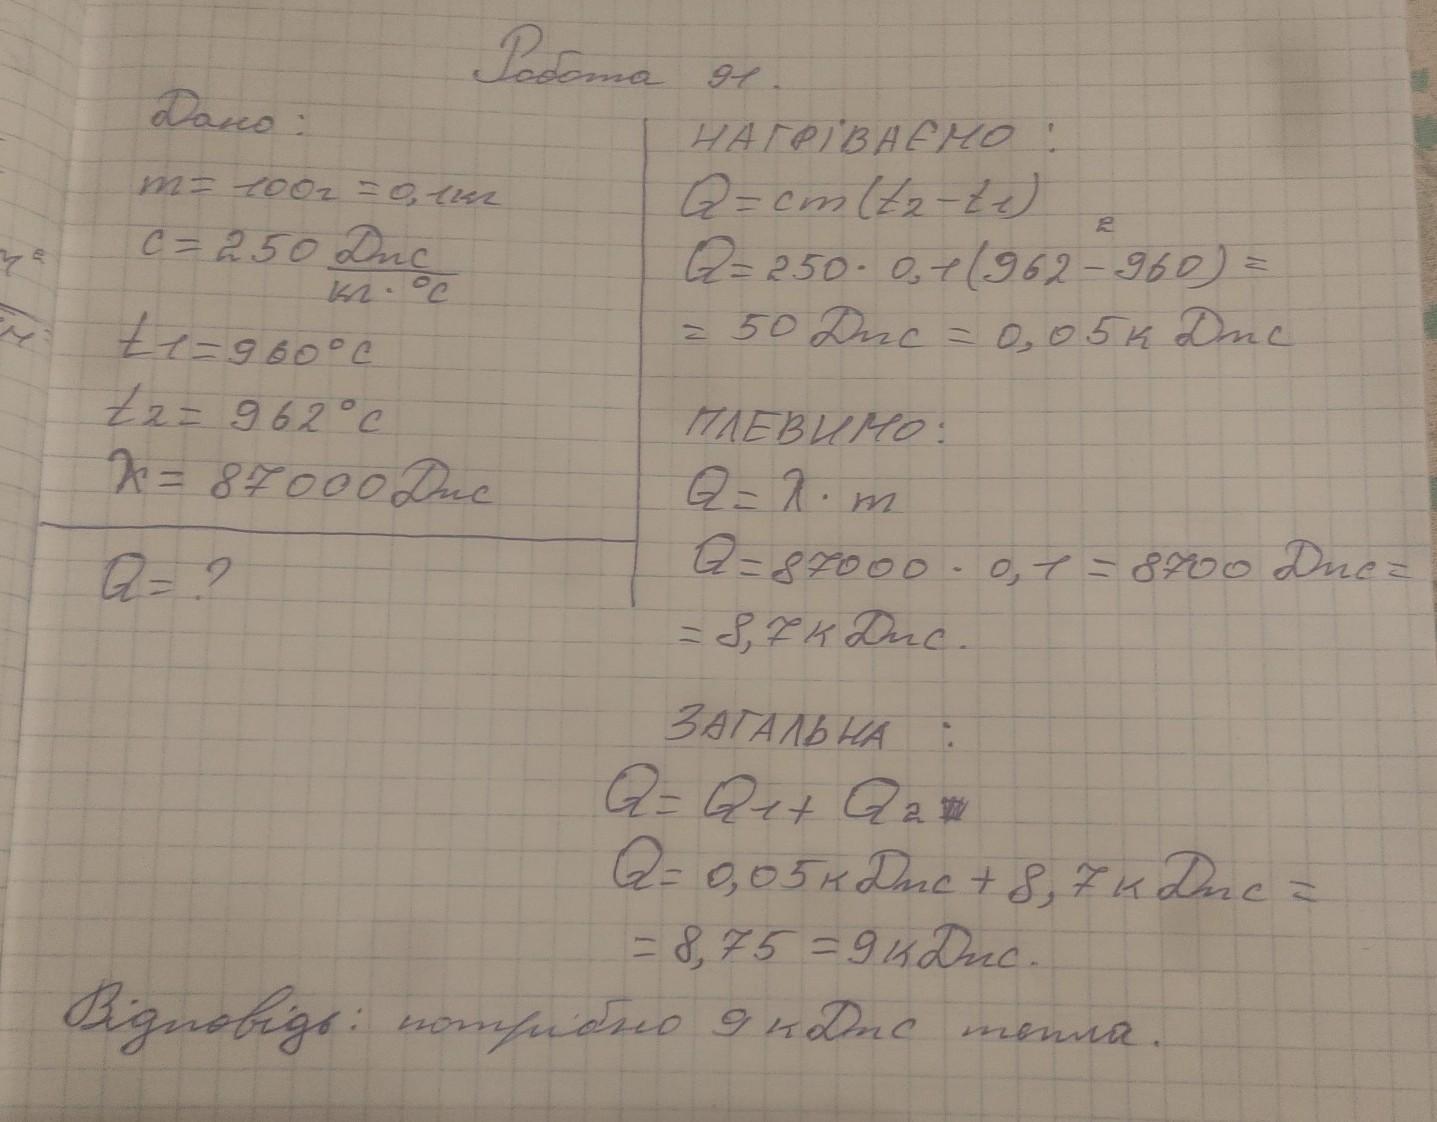 Робота 91.
Дано:
m = 100г = 0,1кг
c = 250 Дж
кг · °C
t1 = 960°C
t2 = 962°C
λ = 87000 Дж
Q = ?
НАГРІВАЄМО :
Q = cm(t2 - t1)
2
Q = 250 · 0,1(962 - 960) =
= 50 Дж = 0,05к Дж
ПЛЕВИМО:
Q = λ · m
Q = 87000 · 0,1 = 8700 Дж =
= 8,7к Дж.
ЗАГАЛЬНА :
Q = Q1 + Q2
Q = 0,05к Дж + 8,7к Дж =
= 8,75 = 9кДж.
Відповідь: потрібно 9 кДж тепла.